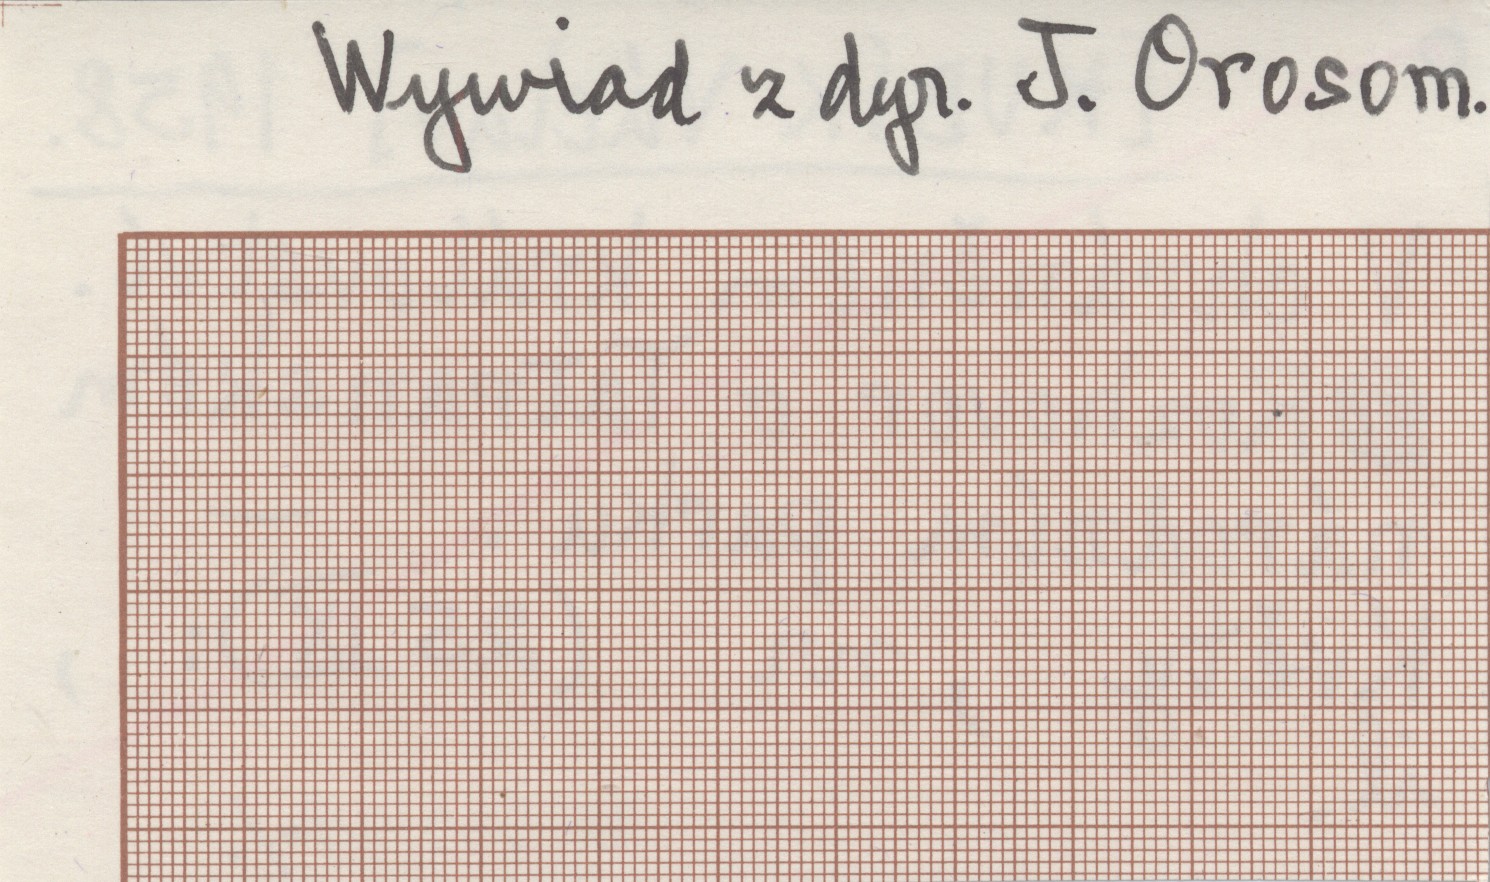 Wywiad z dyr. J. Orosom.